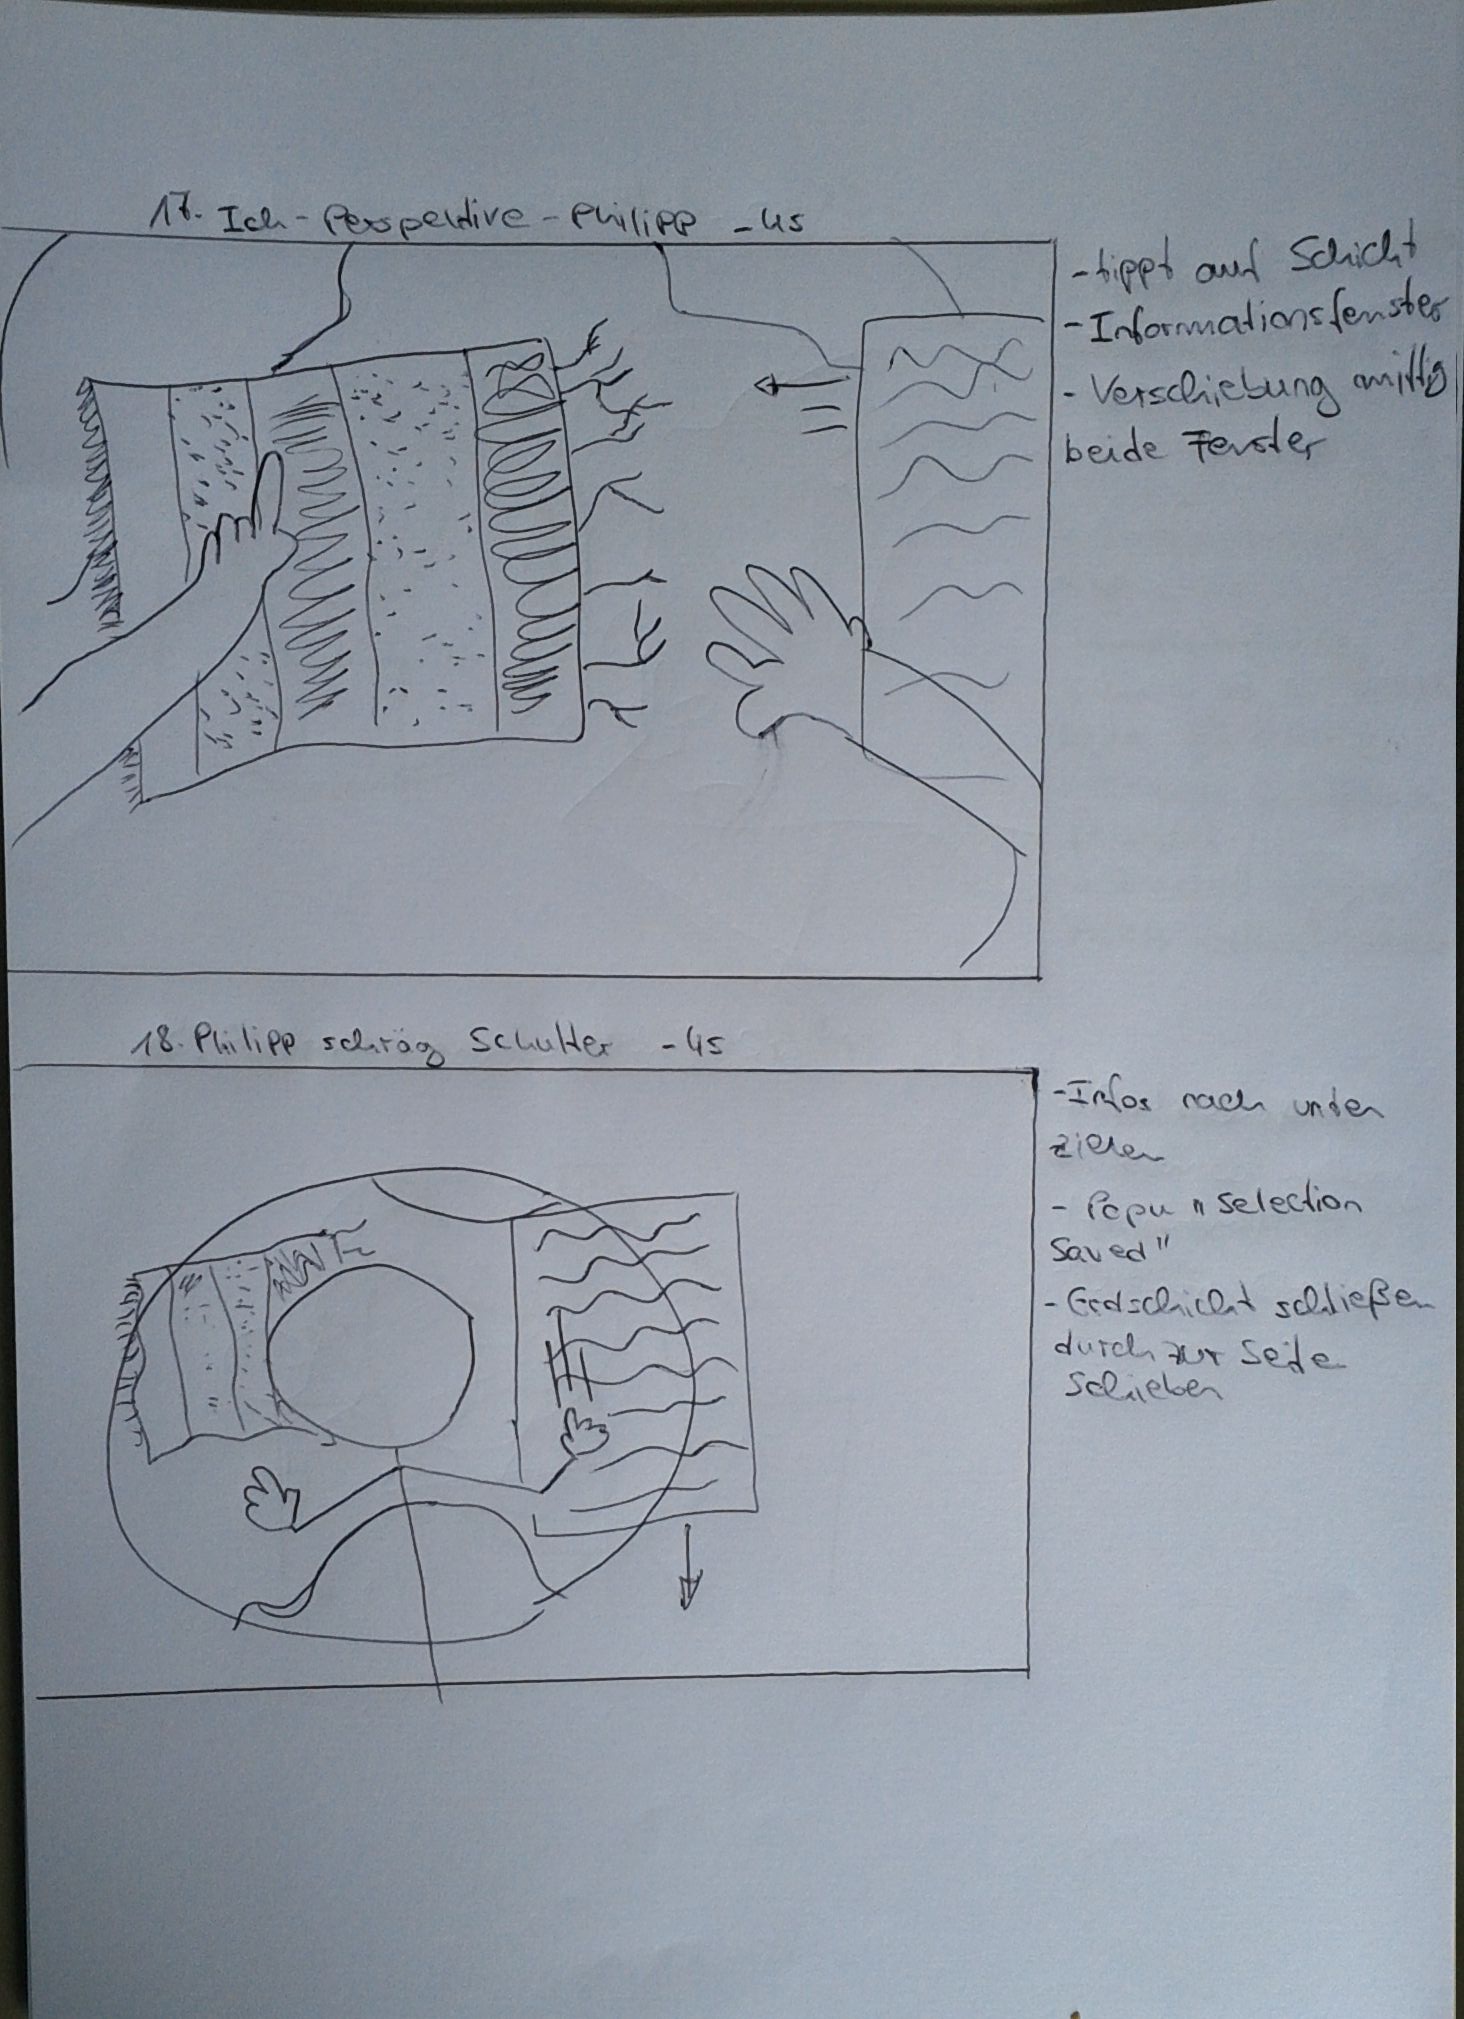 17. Ich-Perspektive-Philipp - 4s
- tippt auf Schicht
- Informationsfenster
- Verschiebung mittig
beide Fenster
18. Philipp schräg Schulter - 4s
- Infos nach unten
ziehen
- Popu "Selection
Saved"
- Erdschicht schließen
durch zur Seite
Schieben